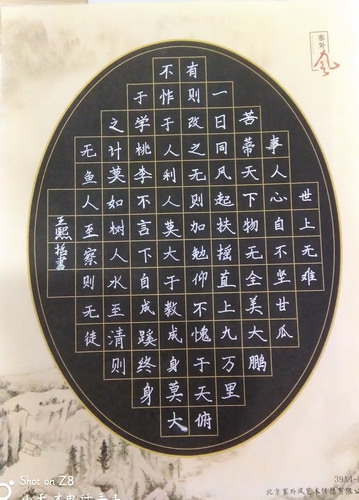 世上无难
事人心自不坚甘瓜
苦蒂天下物无全美大鹏
一日同风起扶摇直上九万里
有则改之无则加勉仰不愧于天俯
不怍于人利人莫大于教成身莫大
于学桃李不言下自成蹊终身
之计莫如树人水至清则
无鱼人至察则无徒
王熙哲書
塞外风
Shot on Z8